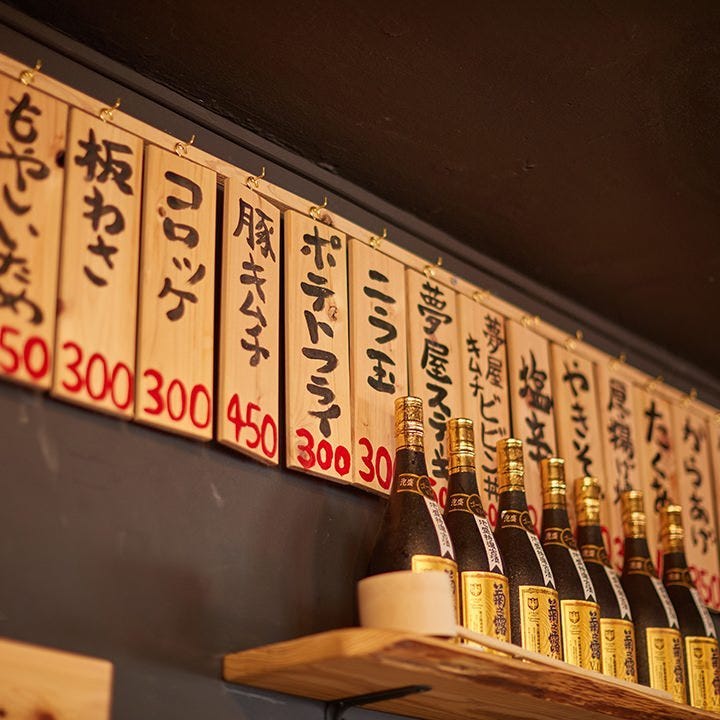 もやしいため
50
板わさ
300
コロッケ
300
豚キムチ
450
ポテトフライ
300
ニラ玉
30
夢屋ステーキ
夢屋
キムチビビン丼
塩辛
やきそ
厚揚げ
たくあ
からあげ
350
菊之露
菊之露
菊之露
菊之露
菊之露